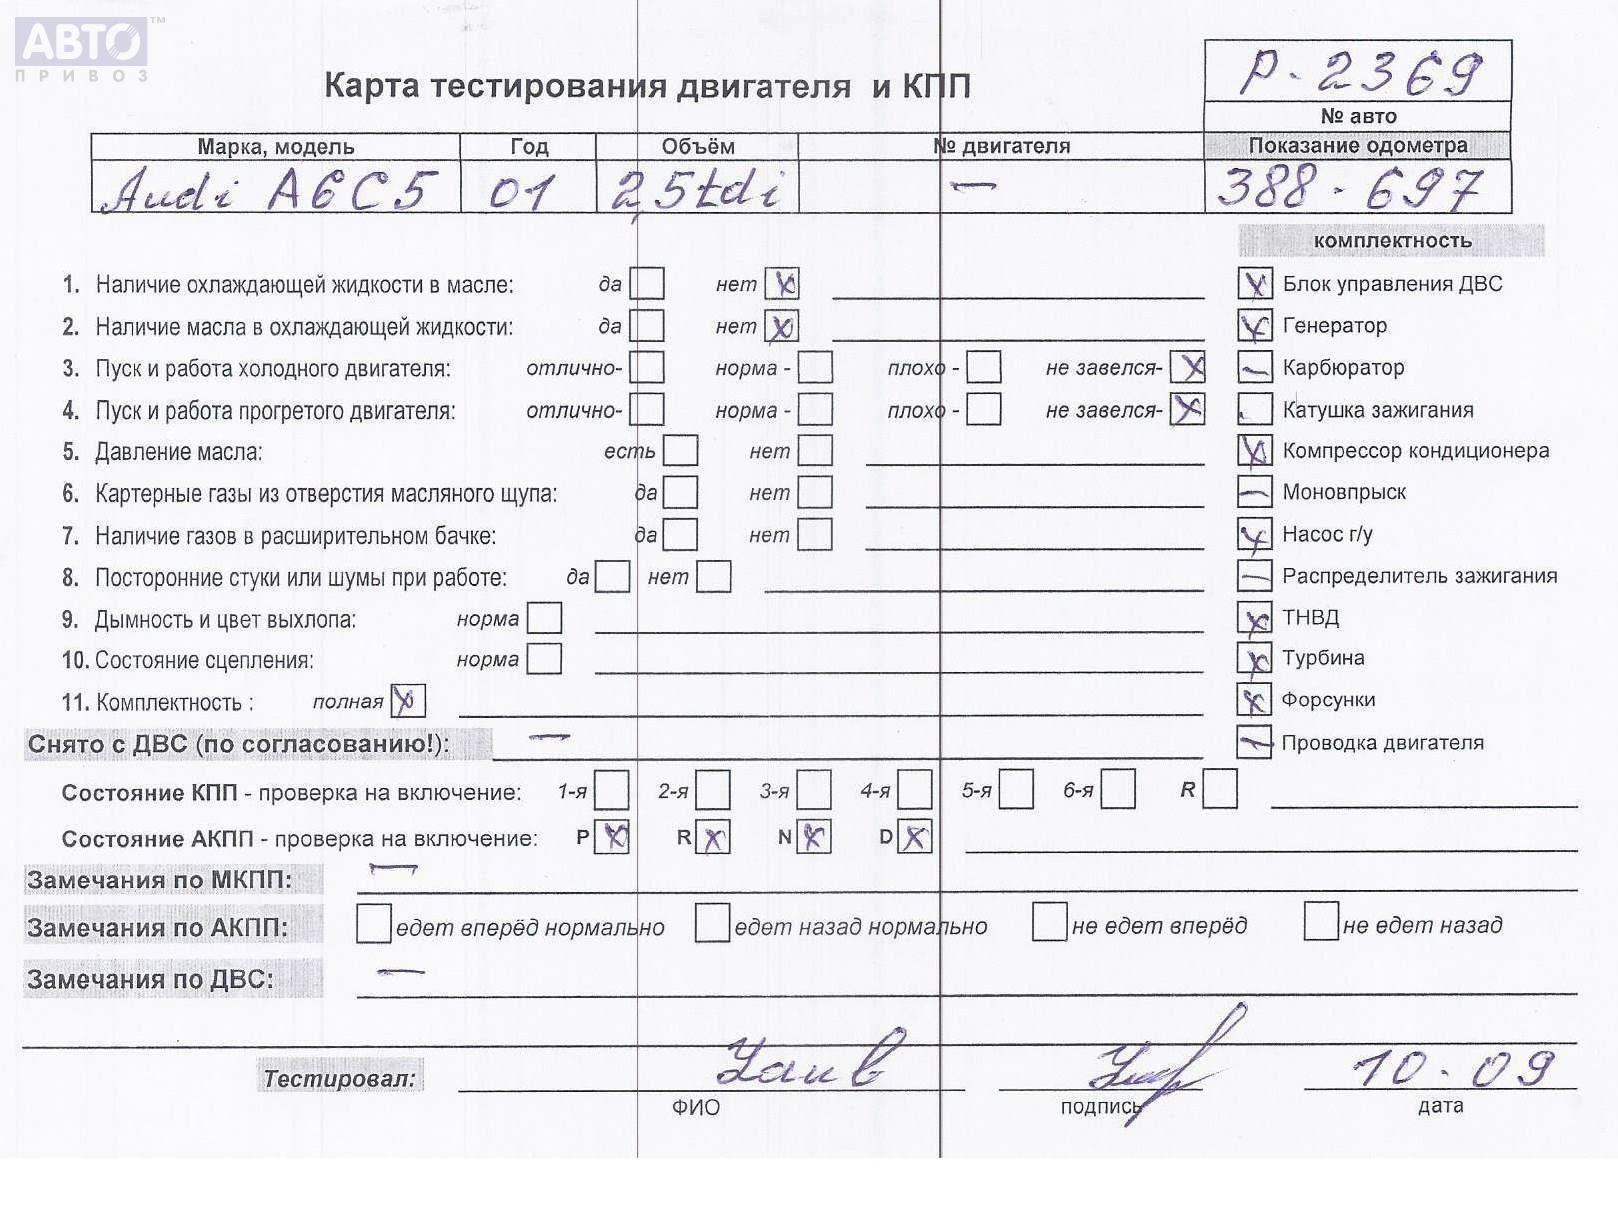 АВТО™
ПРИВОЗ
Карта тестирования двигателя и КПП
P-2369
№ авто
Марка, модель Год Объём № двигателя Показание одометра
Audi A6C5 01 2,5tdi — 388-697
комплектность
1. Наличие охлаждающей жидкости в масле: да нет Блок управления ДВС
2. Наличие масла в охлаждающей жидкости: да нет Генератор
3. Пуск и работа холодного двигателя: отлично- норма - плохо - не завелся- Карбюратор
4. Пуск и работа прогретого двигателя: отлично- норма - плохо - не завелся- Катушка зажигания
5. Давление масла: есть нет Компрессор кондиционера
6. Картерные газы из отверстия масляного щупа: да нет Моновпрыск
7. Наличие газов в расширительном бачке: да нет Насос г/у
8. Посторонние стуки или шумы при работе: да нет Распределитель зажигания
9. Дымность и цвет выхлопа: норма ТНВД
10. Состояние сцепления: норма Турбина
11. Комплектность : полная Форсунки
Снято с ДВС (по согласованию!): — Проводка двигателя
Состояние КПП - проверка на включение: 1-я 2-я 3-я 4-я 5-я 6-я R
Состояние АКПП - проверка на включение: P R N D
Замечания по МКПП: —
Замечания по АКПП: едет вперёд нормально едет назад нормально не едет вперёд не едет назад
Замечания по ДВС: —
Тестировал: 10.09
ФИО подпись дата